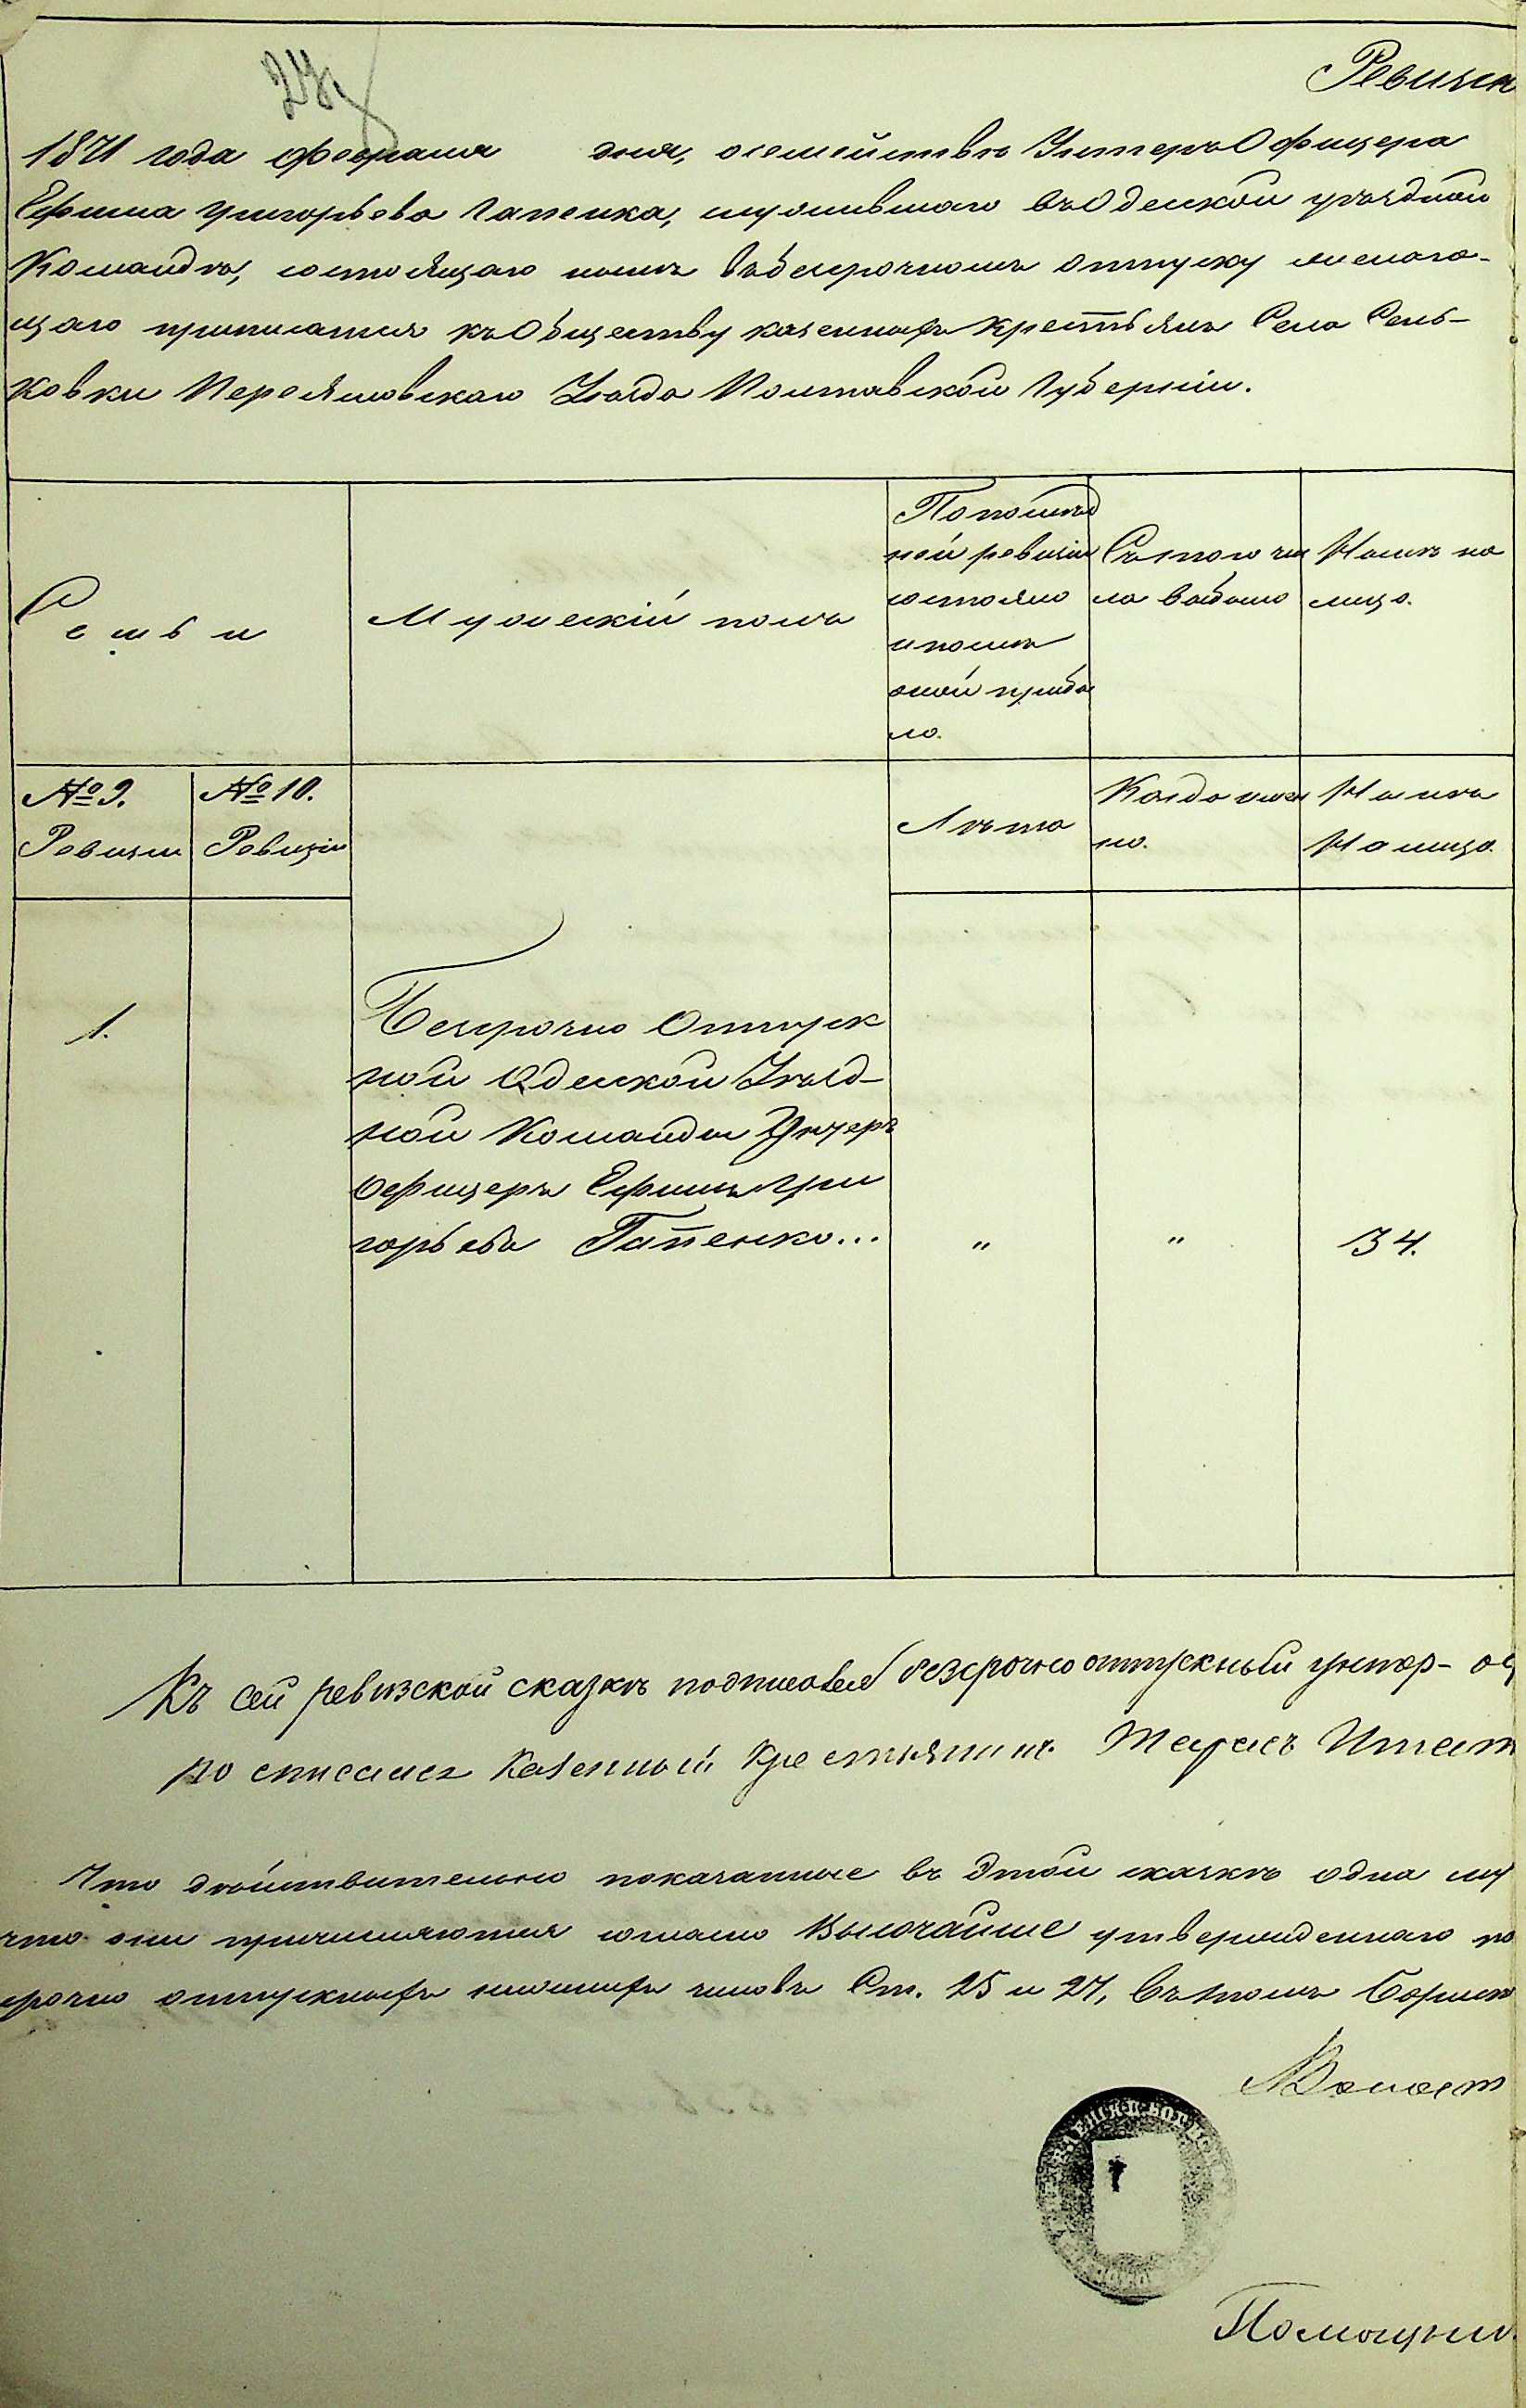 Ревизск
1871 года февраля дня, о семействѣ Унтеръ Офицера
Ефима Григорьева Гапенка, служившаго въ Одеской уѣздной
Командѣ, состоящаго нынѣ въ безсрочномъ отпуску желаю-
щаго приписатся къ Обществу казенныхъ крестьянъ Села Сень-
ковки Переяславскаго Уѣзда Полтавской Губерніи.
Семьи
Мужескій полъ
По послѣд
ней ревизіи
состояло
и послѣ
оной прибы
ло.
Съ того чи
сла выбыло
Нынѣ на
лицо.
№ 9.
Ревизіи
№ 10.
Ревизіи
Лѣта
Когда имен
но.
Нынѣ
На лицо.
1.
Безсрочно Отпуск
ной Одеской Уѣзд-
ной Команды Унтеръ
Офицеръ Ефимъ Гри
горьевъ Гапенко... " " 34.
Къ сей ревизской сказкѣ подписался безсрочно отпускный унтер- оф
казенный крестьянинъ Тарасъ
Что дѣйствительно показанные въ этой сказкѣ одна му
что они причисляются согласно Высочайше утвержденнаго по
срочно отпускныхъ нижнихъ чиновъ Ст. 25 и 27, въ томъ
Волост
Помощни